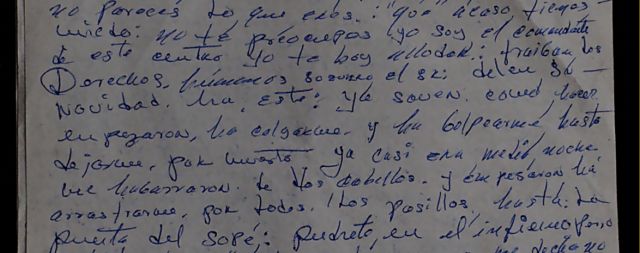 no pareces lo que eres. : "que" acaso tienes
miedo: no te preocupes yo soy el comandante
de este centro yo te boy alludar: traiban los
Derechos, humanos el sr: delen su
Novidad. ha, este: ya saven. como hacer
enpezaron, ha colgarme. y ha Golpearme, hasta
dejarme, por muerto ya casi era media noche
me habarraron. de los cabellos. y enpesaron há
arrastrarme, por todos. llos pasillos, hasta: La
puerta del Sopé;: pudrete, en el infierno